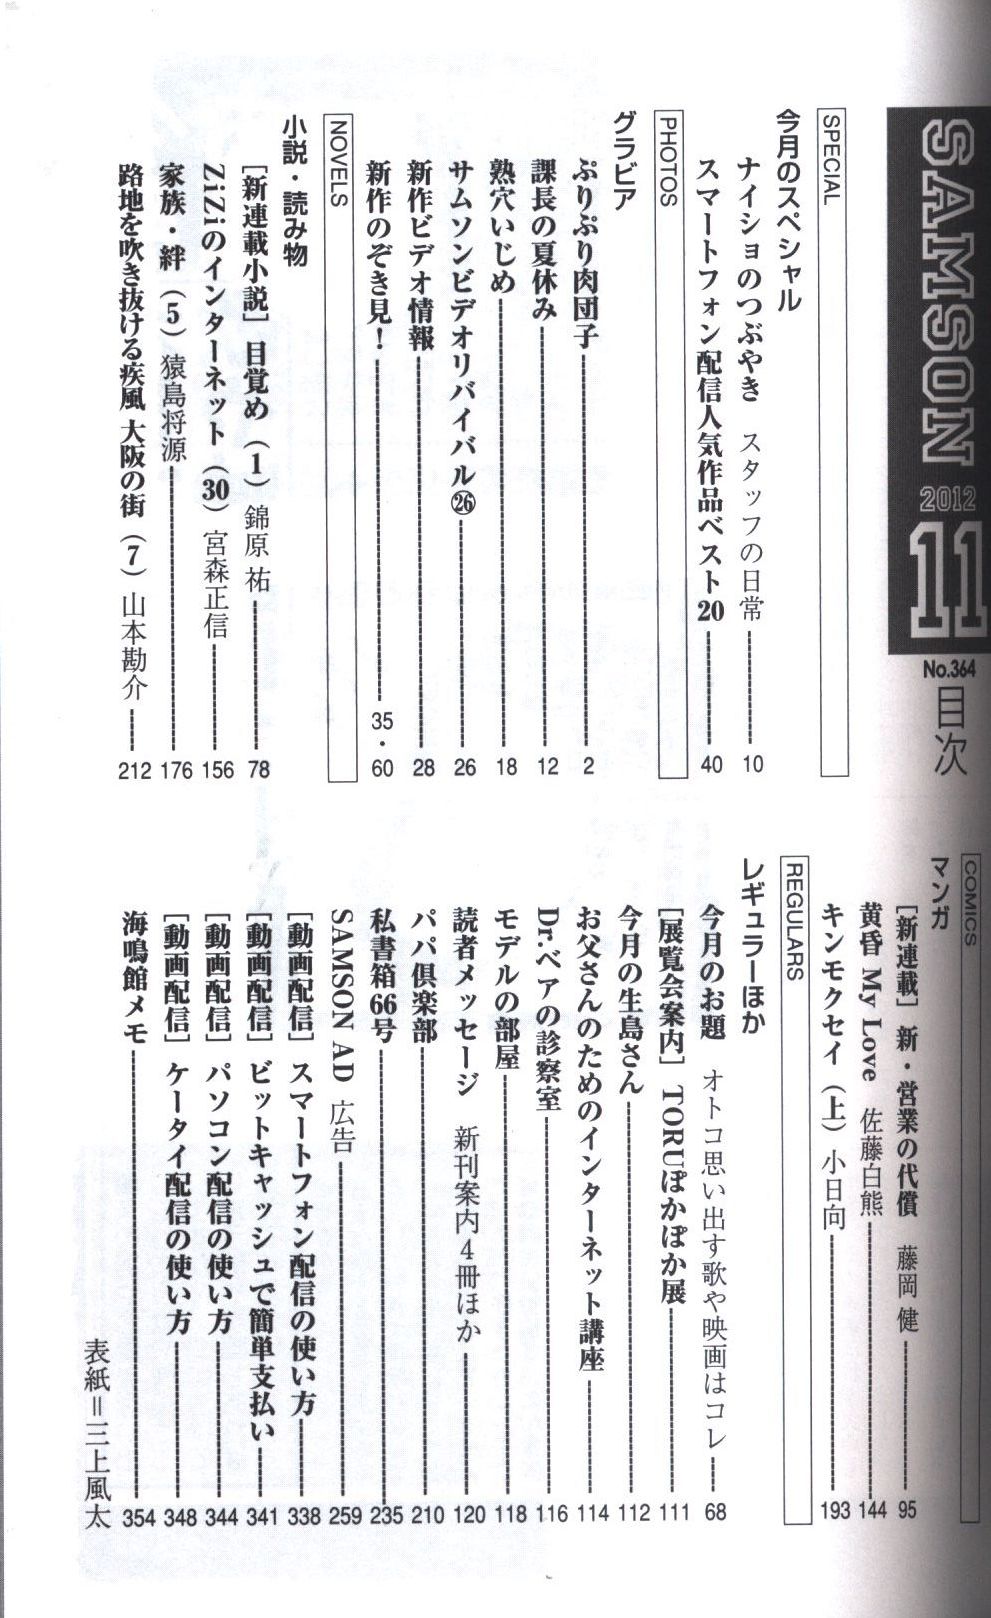 SAMSON
2012
11
No.364
目次
SPECIAL
今月のスペシャル
ナイショのつぶやき スタッフの日常 10
スマートフォン配信人気作品ベスト20 40
PHOTOS
グラビア
ぷりぷり肉団子 2
課長の夏休み 12
熟穴いじめ 18
サムソンビデオリバイバル㉖ 26
新作ビデオ情報 28
新作のぞき見! 35・60
NOVELS
小説・読み物
[新連載小説] 目覚め(1) 錦原 祐 78
ZiZiのインターネット(30) 宮森正信 156
家族・絆(5) 猿島将源 176
路地を吹き抜ける疾風 大阪の街(7) 山本勘介 212
COMICS
マンガ
[新連載] 新・営業の代償 藤岡 健 95
黄昏 My Love 佐藤白熊 144
キンモクセイ(上) 小日向 193
REGULARS
レギュラーほか
今月のお題 オトコ思い出す歌や映画はコレ 68
[展覧会案内] TORUぽかぽか展 111
今月の生島さん 112
お父さんのためのインターネット講座 114
Dr.ベアの診察室 116
モデルの部屋 118
読者メッセージ 新刊案内4冊ほか 120
パパ倶楽部 210
私書箱66号 235
SAMSON AD 広告 259
[動画配信] スマートフォン配信の使い方 338
[動画配信] ビットキャッシュで簡単支払い 341
[動画配信] パソコン配信の使い方 344
[動画配信] ケータイ配信の使い方 348
海鳴館メモ 354
表紙=三上風太